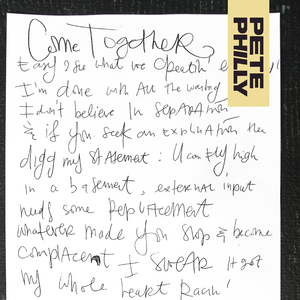 Come Together
Easy 2 see what we
I'm done with all the wasting
I don't believe in separation
& if you seek an explanation then
digg my statement: U can fly high
in a basement, external input
needs some replacement
whatever made you stop & become
complacent I swear it got
my whole heart racin'
PETE
PHILLY